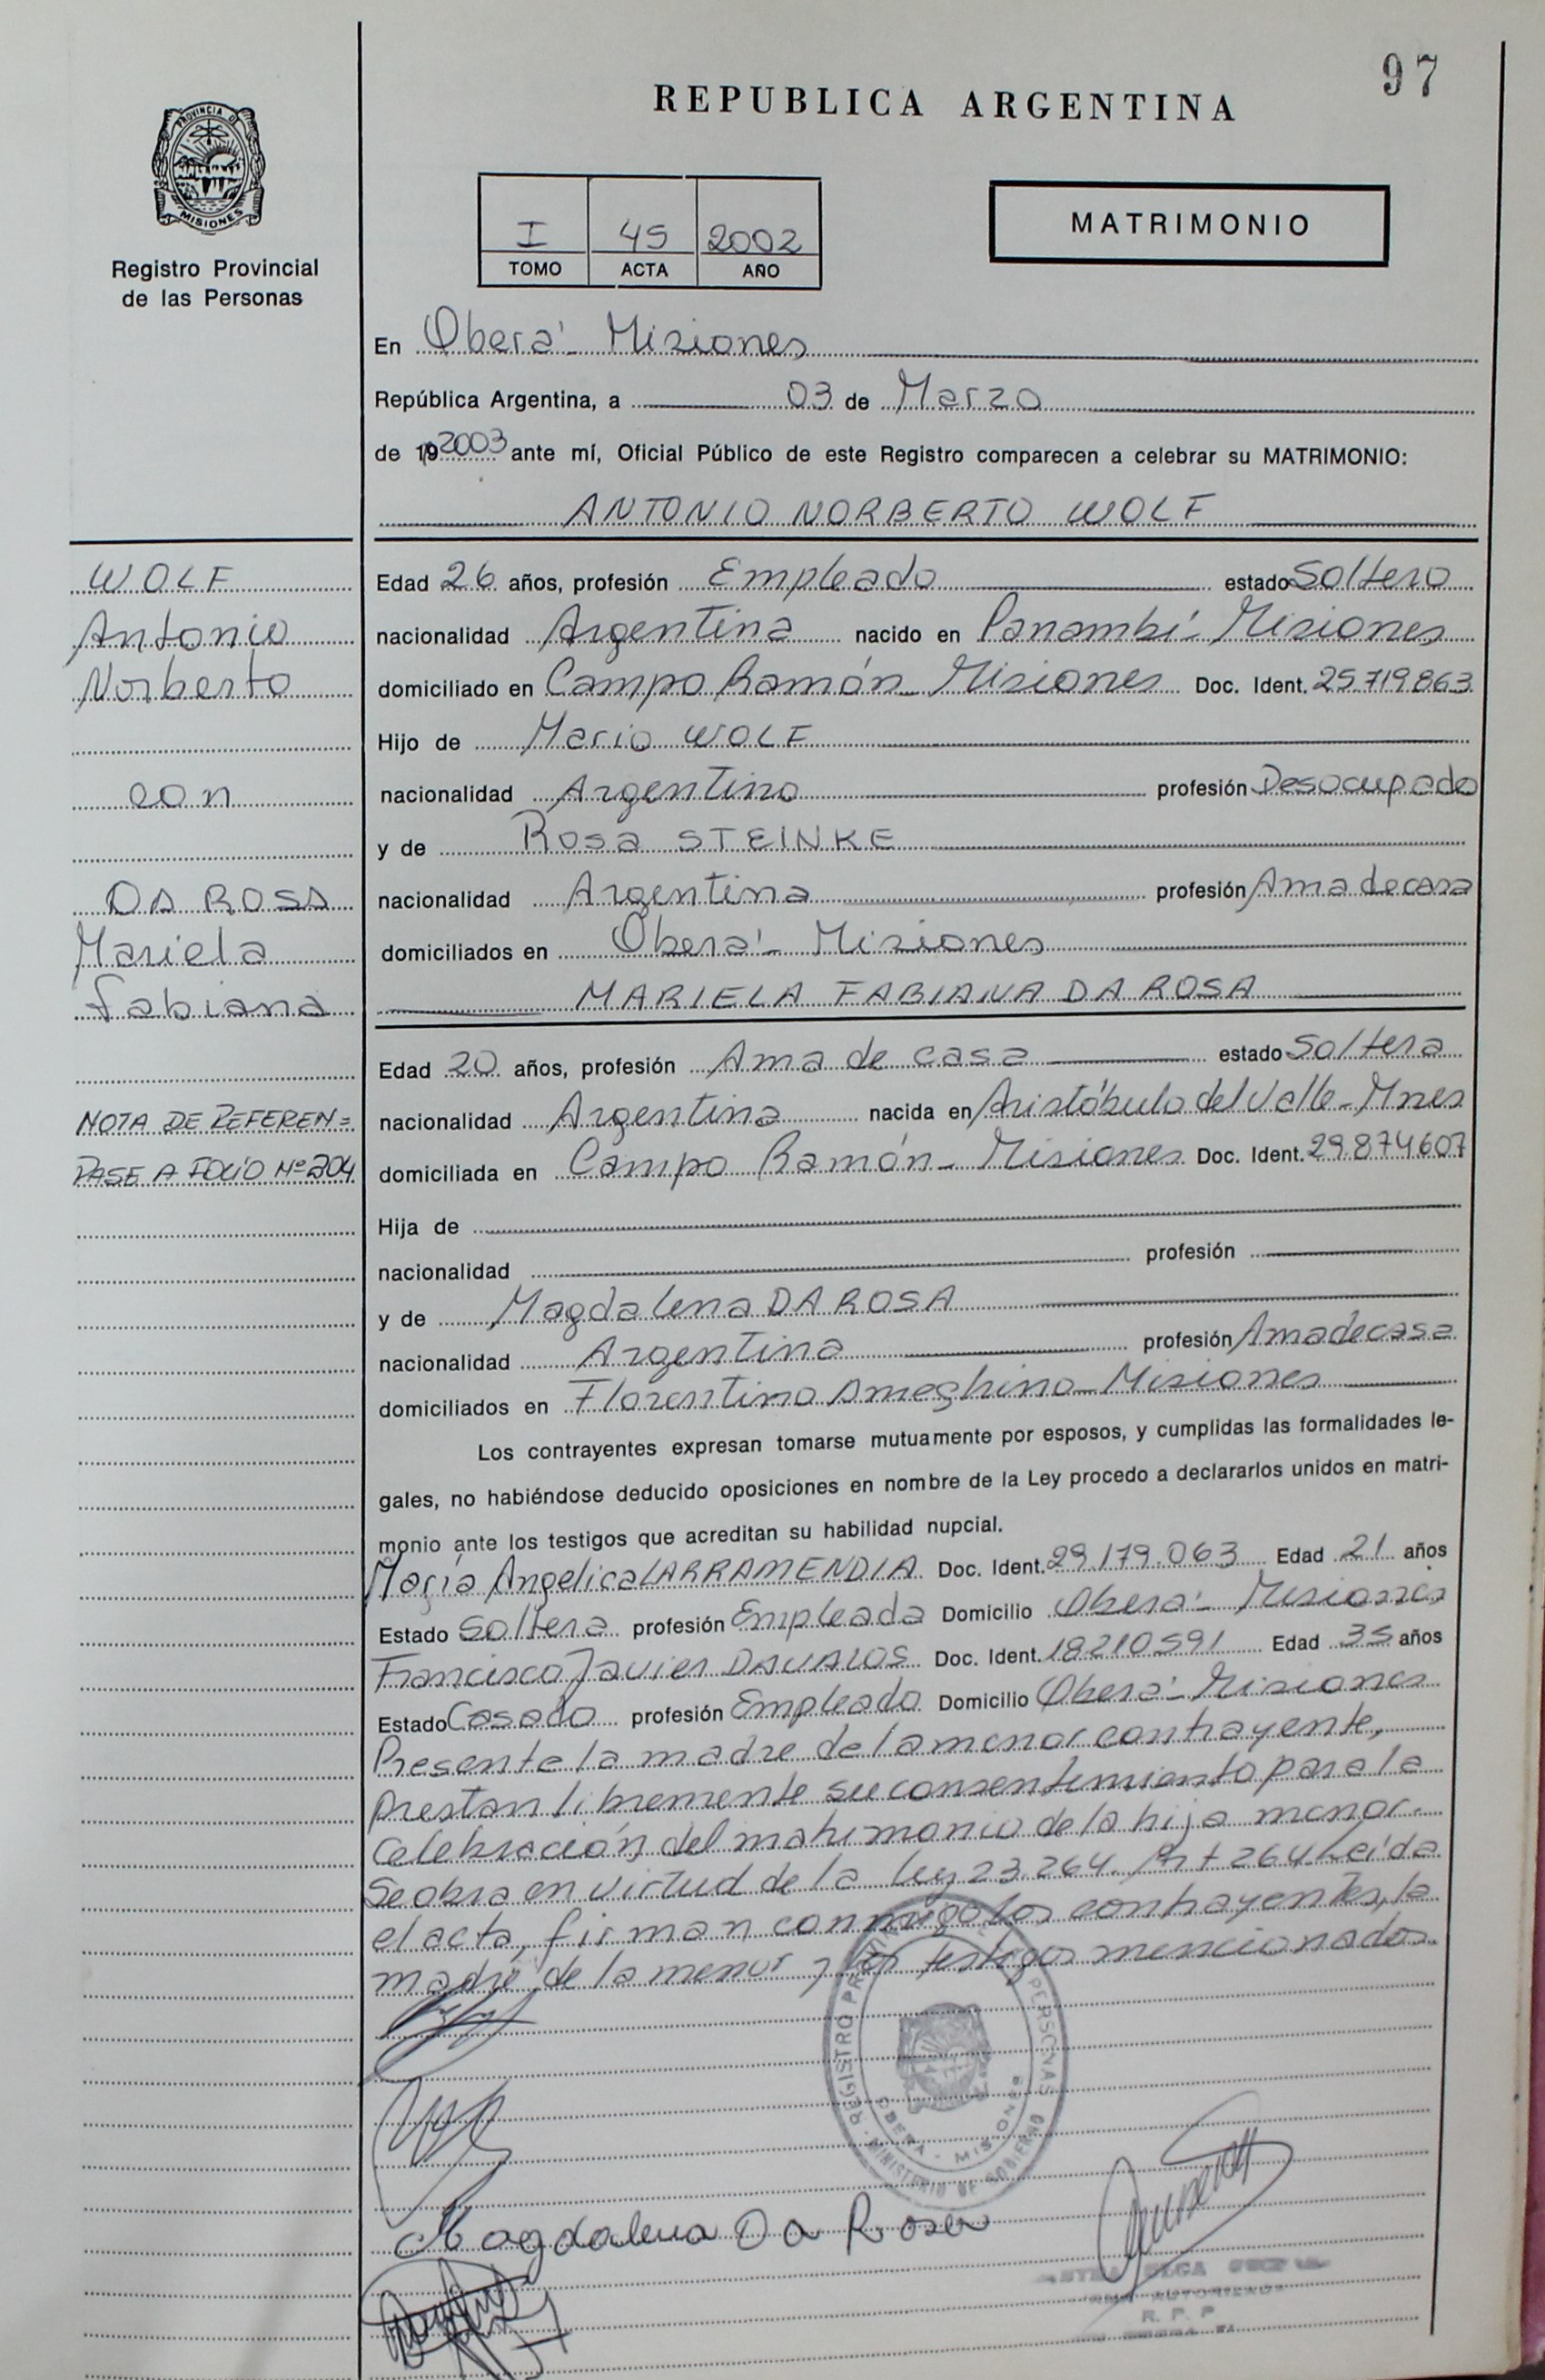 97
REPUBLICA ARGENTINA
PROVINCIA DE
MISIONES
Registro Provincial
de las Personas
I 45 2002
TOMO ACTA AÑO
MATRIMONIO
En Oberá - Misiones
República Argentina, a 03 de Marzo
de 19 2003 ante mí, Oficial Público de este Registro comparecen a celebrar su MATRIMONIO:
ANTONIO NORBERTO WOLF
WOLF
Antonio
Norberto
con
DA ROSA
Mariela
Fabiana
NOTA DE REFEREN=
PASE A FOLIO Nº 204
Edad 26 años, profesión Empleado estado Soltero
nacionalidad Argentina nacido en Panambí - Misiones
domiciliado en Campo Ramón - Misiones Doc. Ident. 25.719.863
Hijo de Mario WOLF
nacionalidad Argentino profesión Desocupado
y de Rosa STEINKE
nacionalidad Argentina profesión Ama de casa
domiciliados en Oberá - Misiones
MARIELA FABIANA DA ROSA
Edad 20 años, profesión Ama de casa estado Soltera
nacionalidad Argentina nacida en Aristóbulo del Valle - Mnes
domiciliada en Campo Ramón - Misiones Doc. Ident. 29.874607
Hija de
nacionalidad profesión
y de Magdalena DA ROSA
nacionalidad Argentina profesión Ama de casa
domiciliados en Florentino Ameghino - Misiones
Los contrayentes expresan tomarse mutuamente por esposos, y cumplidas las formalidades le-
gales, no habiéndose deducido oposiciones en nombre de la Ley procedo a declararlos unidos en matri-
monio ante los testigos que acreditan su habilidad nupcial.
María Angelica LARRAMENDIA Doc. Ident. 29.179.063 Edad 21 años
Estado Soltera profesión Empleada Domicilio Oberá - Misiones
Francisco Javier DAVALOS Doc. Ident. 18210591 Edad 35 años
Estado Casado profesión Empleado Domicilio Oberá - Misiones
Presente la madre de la menor contrayente,
prestan libremente su consentimiento para la
Celebración del matrimonio de la hija menor.
Se obra en virtud de la Ley 23.264. Art 264. Leída
el acta, firman conmigo los contrayentes, la
madre de la menor y los testigos mencionados.
PERSONAS
OBERA - MISIONES
MINISTERIO DE GOBIERNO
Magdalena Da Rosa
R. P. P